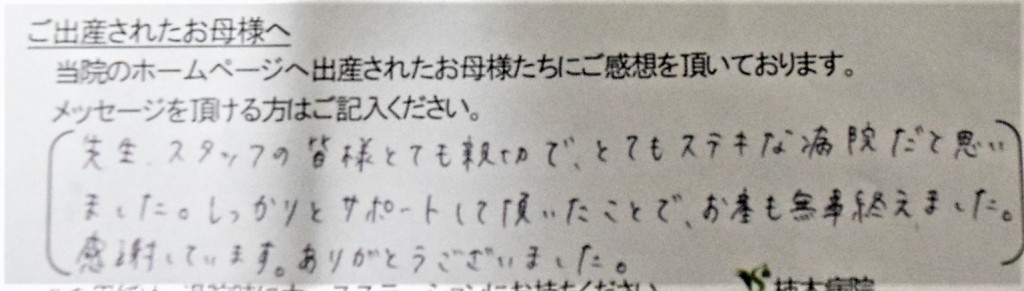 ご出産されたお母様へ
当院のホームページへ出産されたお母様たちにご感想を頂いております。
メッセージを頂ける方はご記入ください。
先生、スタッフの皆様とても親切で、とてもステキな病院だと思い
ました。しっかりとサポートして頂いたことで、お産も無事終えました。
感謝しています。ありがとうございました。